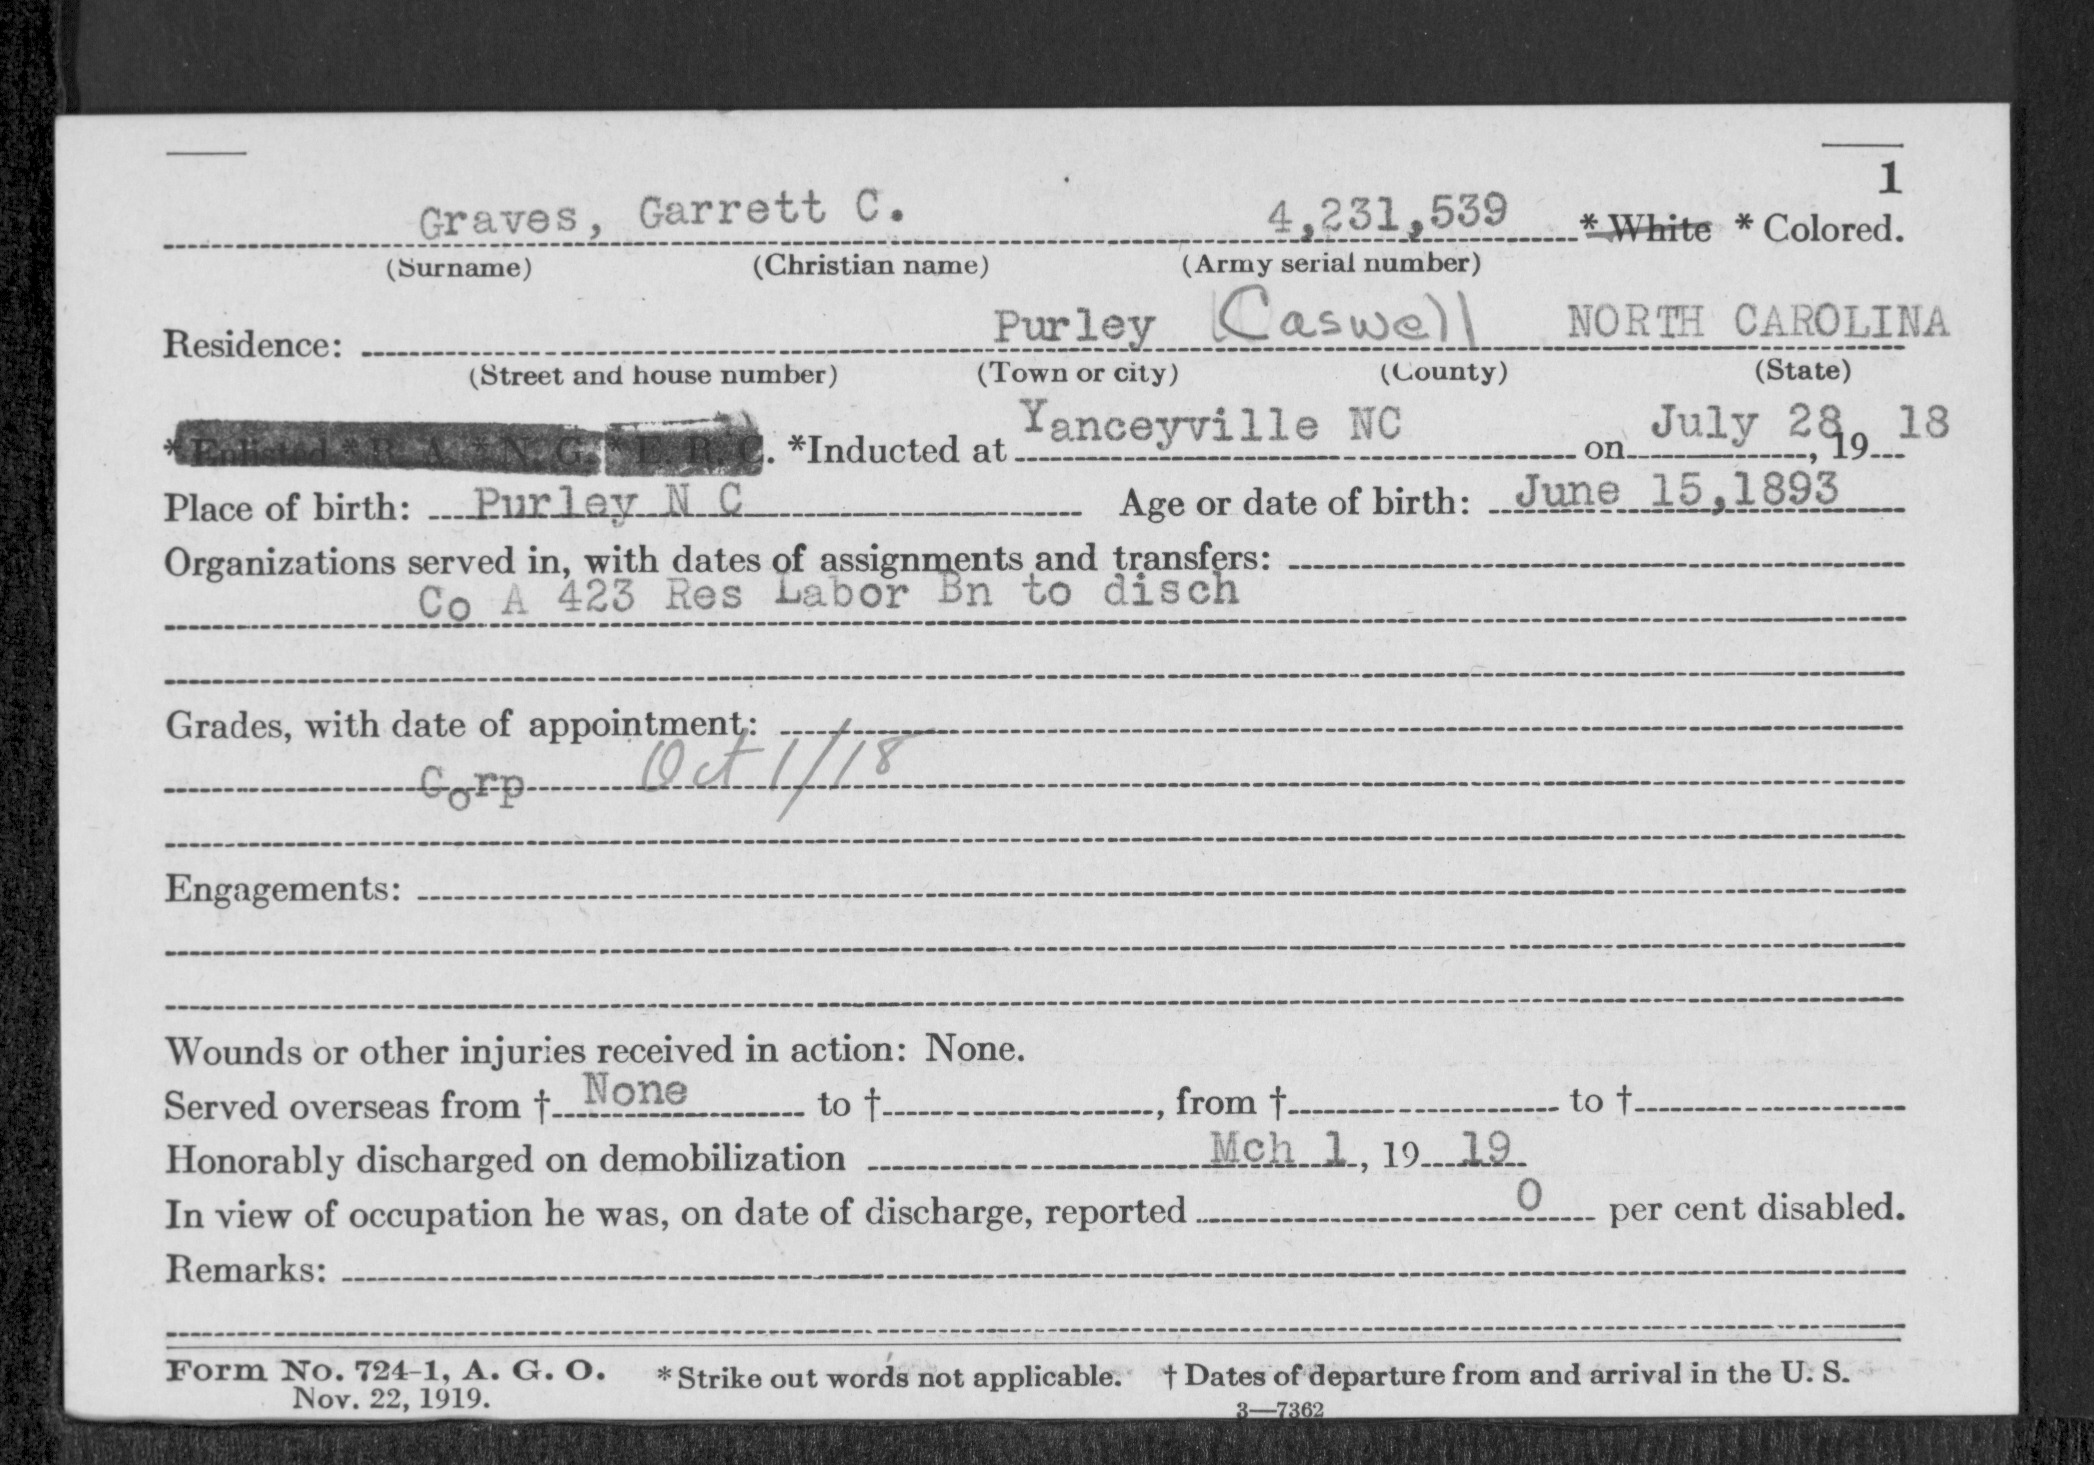 1
Graves, Garrett C. 4,231,539 * White * Colored.
(Surname) (Christian name) (Army serial number)
Residence: Purley Caswell NORTH CAROLINA
(Street and house number) (Town or city) (County) (State)
* Enlisted * R. A. * N. G. * E. R. C. *Inducted at Yanceyville NC on July 28, 19 18
Place of birth: Purley N C Age or date of birth: June 15,1893
Organizations served in, with dates of assignments and transfers:
Co A 423 Res Labor Bn to disch
Grades, with date of appointment:
Corp Oct 1/18
Engagements:
Wounds or other injuries received in action: None.
Served overseas from † None to †, from † to †
Honorably discharged on demobilization Mch 1, 19 19
In view of occupation he was, on date of discharge, reported 0 per cent disabled.
Remarks:
Form No. 724-1, A. G. O. * Strike out words not applicable. † Dates of departure from and arrival in the U. S.
Nov. 22, 1919. 3—7362